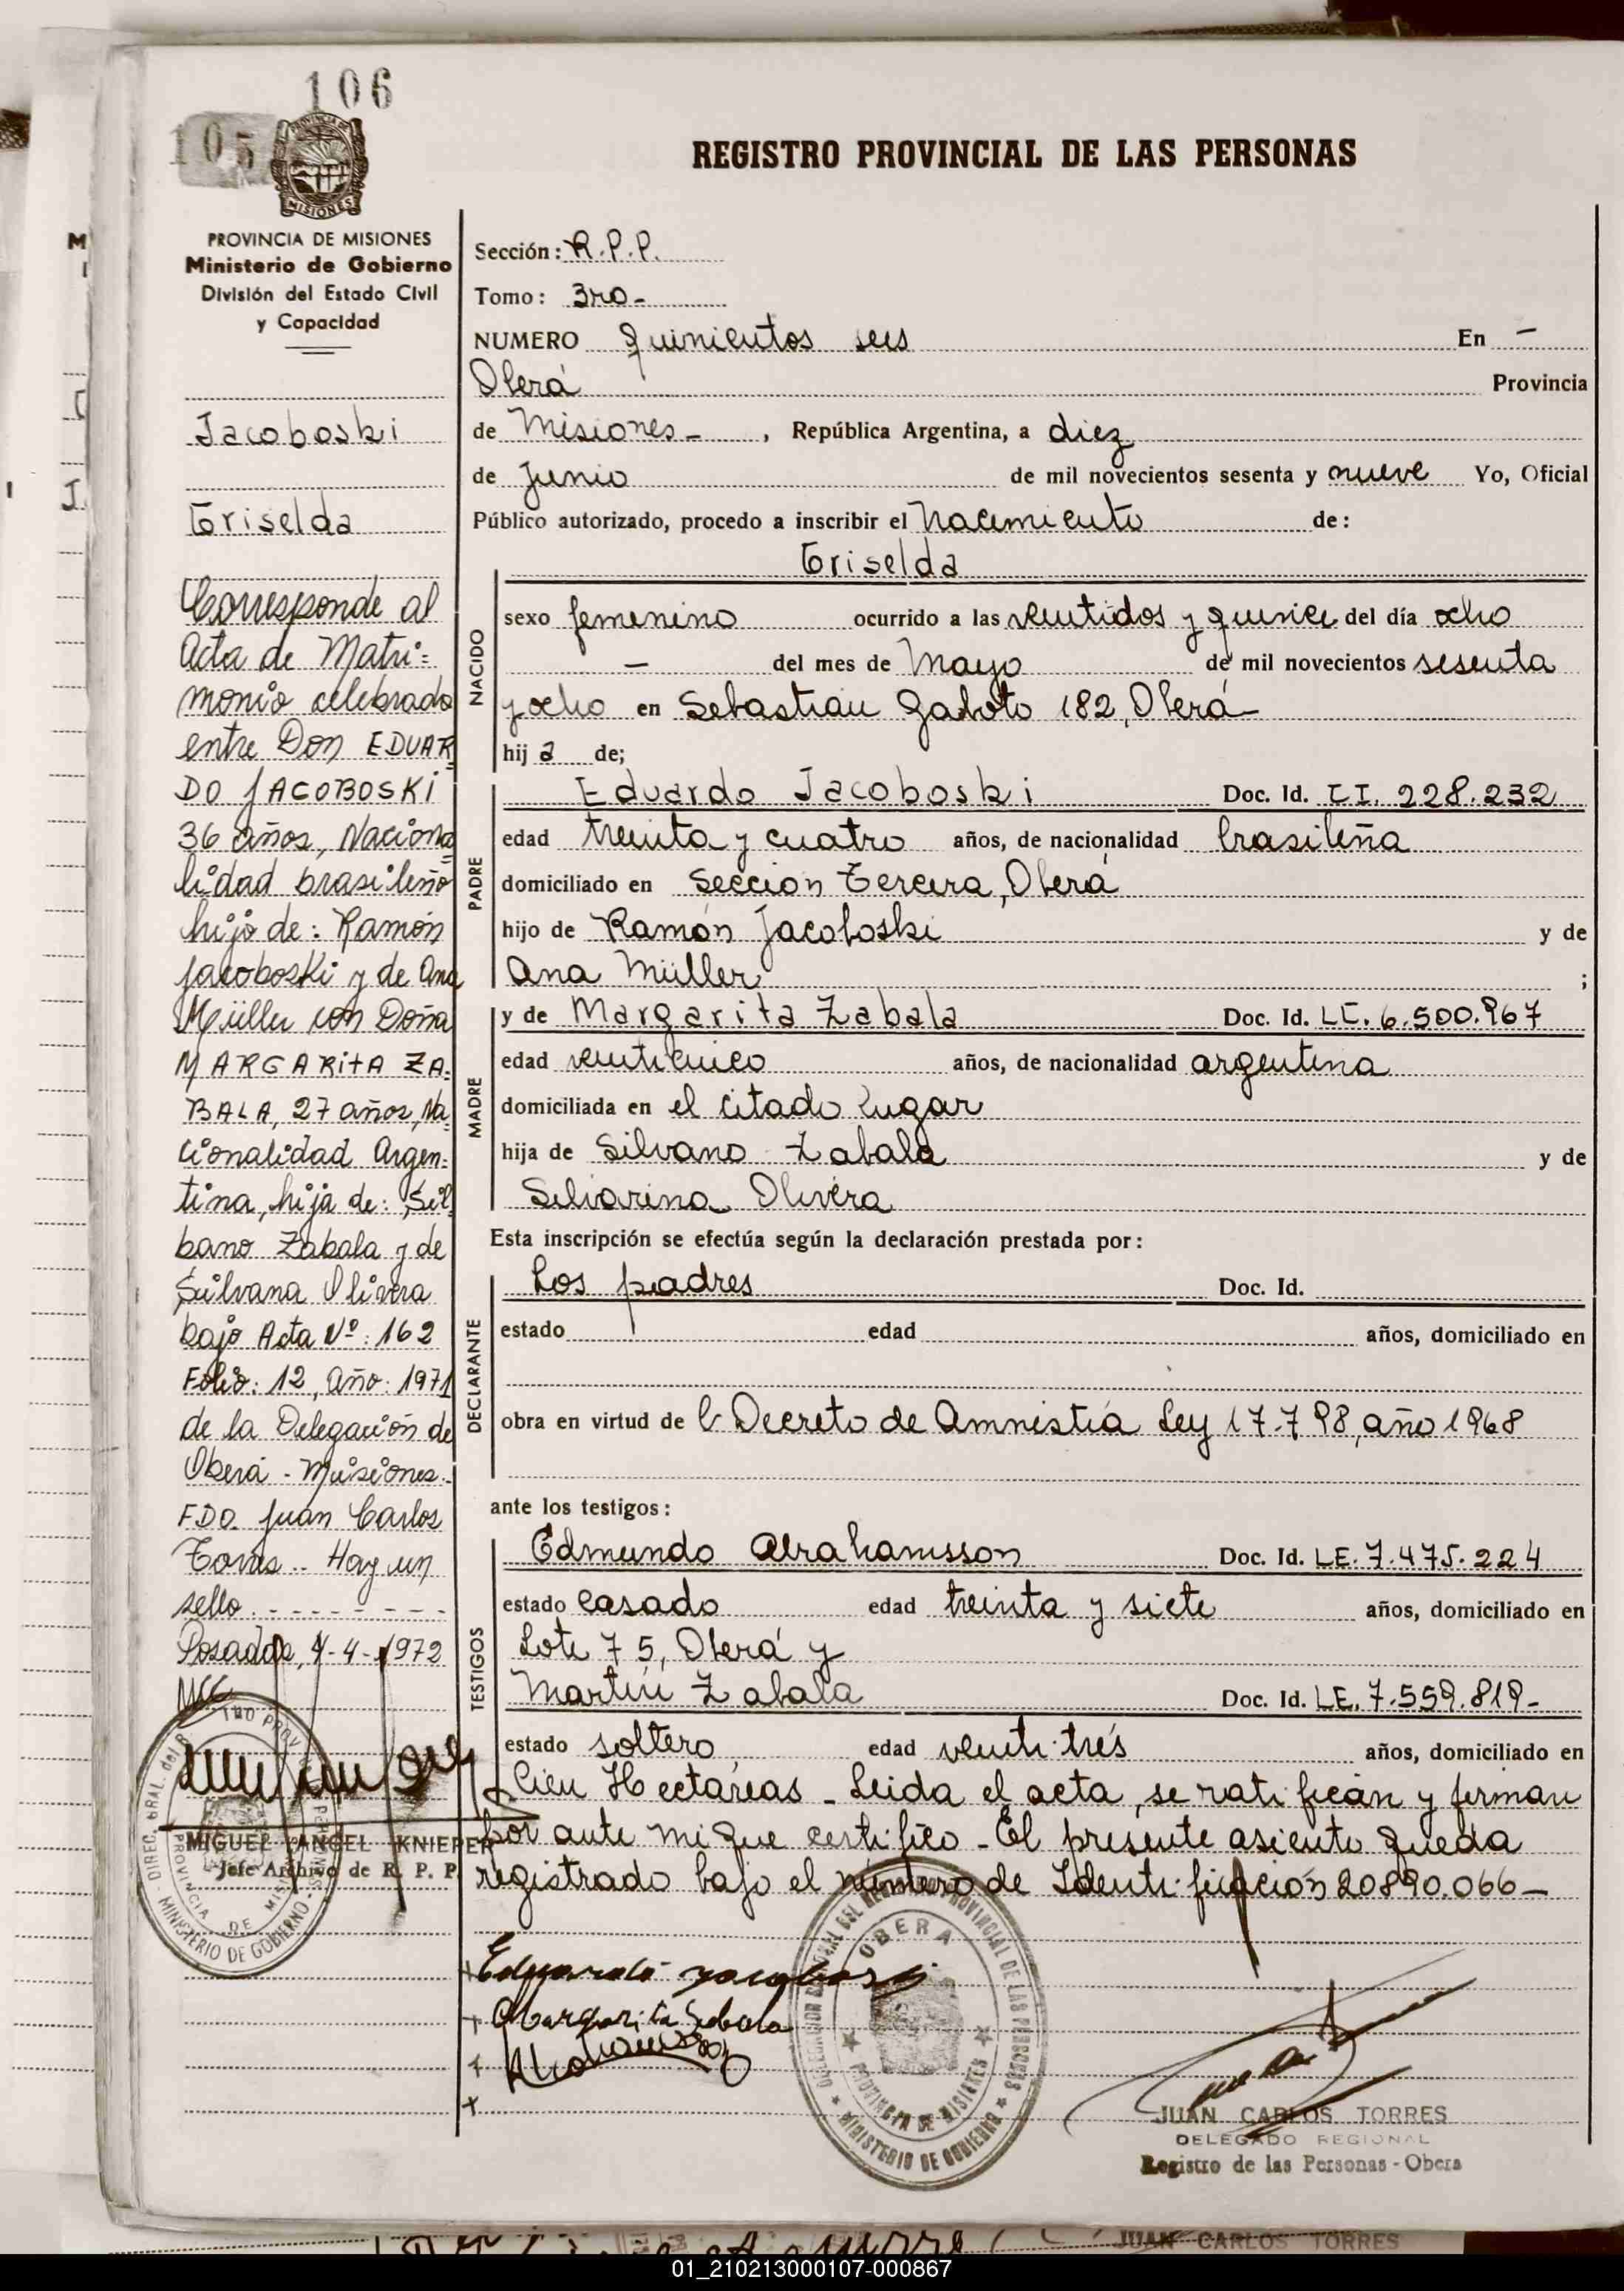 106
105
PROVINCIA DE MISIONES
REGISTRO PROVINCIAL DE LAS PERSONAS
PROVINCIA DE MISIONES
Ministerio de Gobierno
División del Estado Civil
y Capacidad
Jacoboski
Griselda
Corresponde al
Acta de Matri=
monio celebrado
entre Don EDUAR
DO JACOBOSKI
36 años, Naciona
lidad brasileño
hijo de: Ramón
Jacoboski y de Ana
Müller con Doña
MARGARITA ZA-
BALA, 27 años, Na
cionalidad Argen-
tina, hija de: Sil
bano Zabala y de
Silvana Olivera
bajo Acta Nº: 162
Folio: 12, año: 1971
de la Delegación de
Oberá - Misiones.-
FDO. Juan Carlos
Torres.. Hay un
sello. - - - - - - - -
Posadas, 4-4-1972
MIGUEL ANGEL KNIEPER
Jefe Archivo de R. P. P.
Sección: R.P.P.
Tomo: 3ro-
NUMERO Quinientos seis En -
Oberá Provincia
de Misiones-, República Argentina, a diez
de Junio de mil novecientos sesenta y nueve Yo, Oficial
Público autorizado, procedo a inscribir el Nacimiento de:
Griselda
NACIDO
sexo femenino ocurrido a las veintidos y quince del día ocho
- del mes de Mayo de mil novecientos sesenta
y ocho en Sebastian Gaboto 182, Oberá-
hij a de;
PADRE
Eduardo Jacoboski Doc. Id. CI. 228.232
edad treinta y cuatro años, de nacionalidad brasileña
domiciliado en Sección Tercera, Oberá
hijo de Ramón Jacoboski y de
Ana Müller ;
MADRE
y de Margarita Zabala Doc. Id. LC. 6.500.967
edad veinticinco años, de nacionalidad argentina
domiciliada en el citado lugar
hija de Silvano Zabala y de
Silvarina Olivera
Esta inscripción se efectúa según la declaración prestada por:
DECLARANTE
Los padres Doc. Id.
estado edad años, domiciliado en
obra en virtud de l Decreto de Amnistía Ley 17.798, año 1968
ante los testigos:
TESTIGOS
Edmundo Abrahamsson Doc. Id. LE. 7.475.224
estado casado edad treinta y siete años, domiciliado en
Lote 75, Oberá y
Martín Zabala Doc. Id. LE. 7.559.819-
estado soltero edad veinti trés años, domiciliado en
Cien Hectáreas - Leida el acta, se ratifican y firman
por ante mi que certifico - El presente asiento queda
registrado bajo el número de Identificación 20890.066-
Eduardo
Margarita Zabala
OBERA
PROVINCIA DE MISIONES
MINISTERIO DE GOBIERNO
JUAN CARLOS TORRES
DELEGADO REGIONAL
Registro de las Personas - Obera
JUAN CARLOS TORRES
01_210213000107-000867